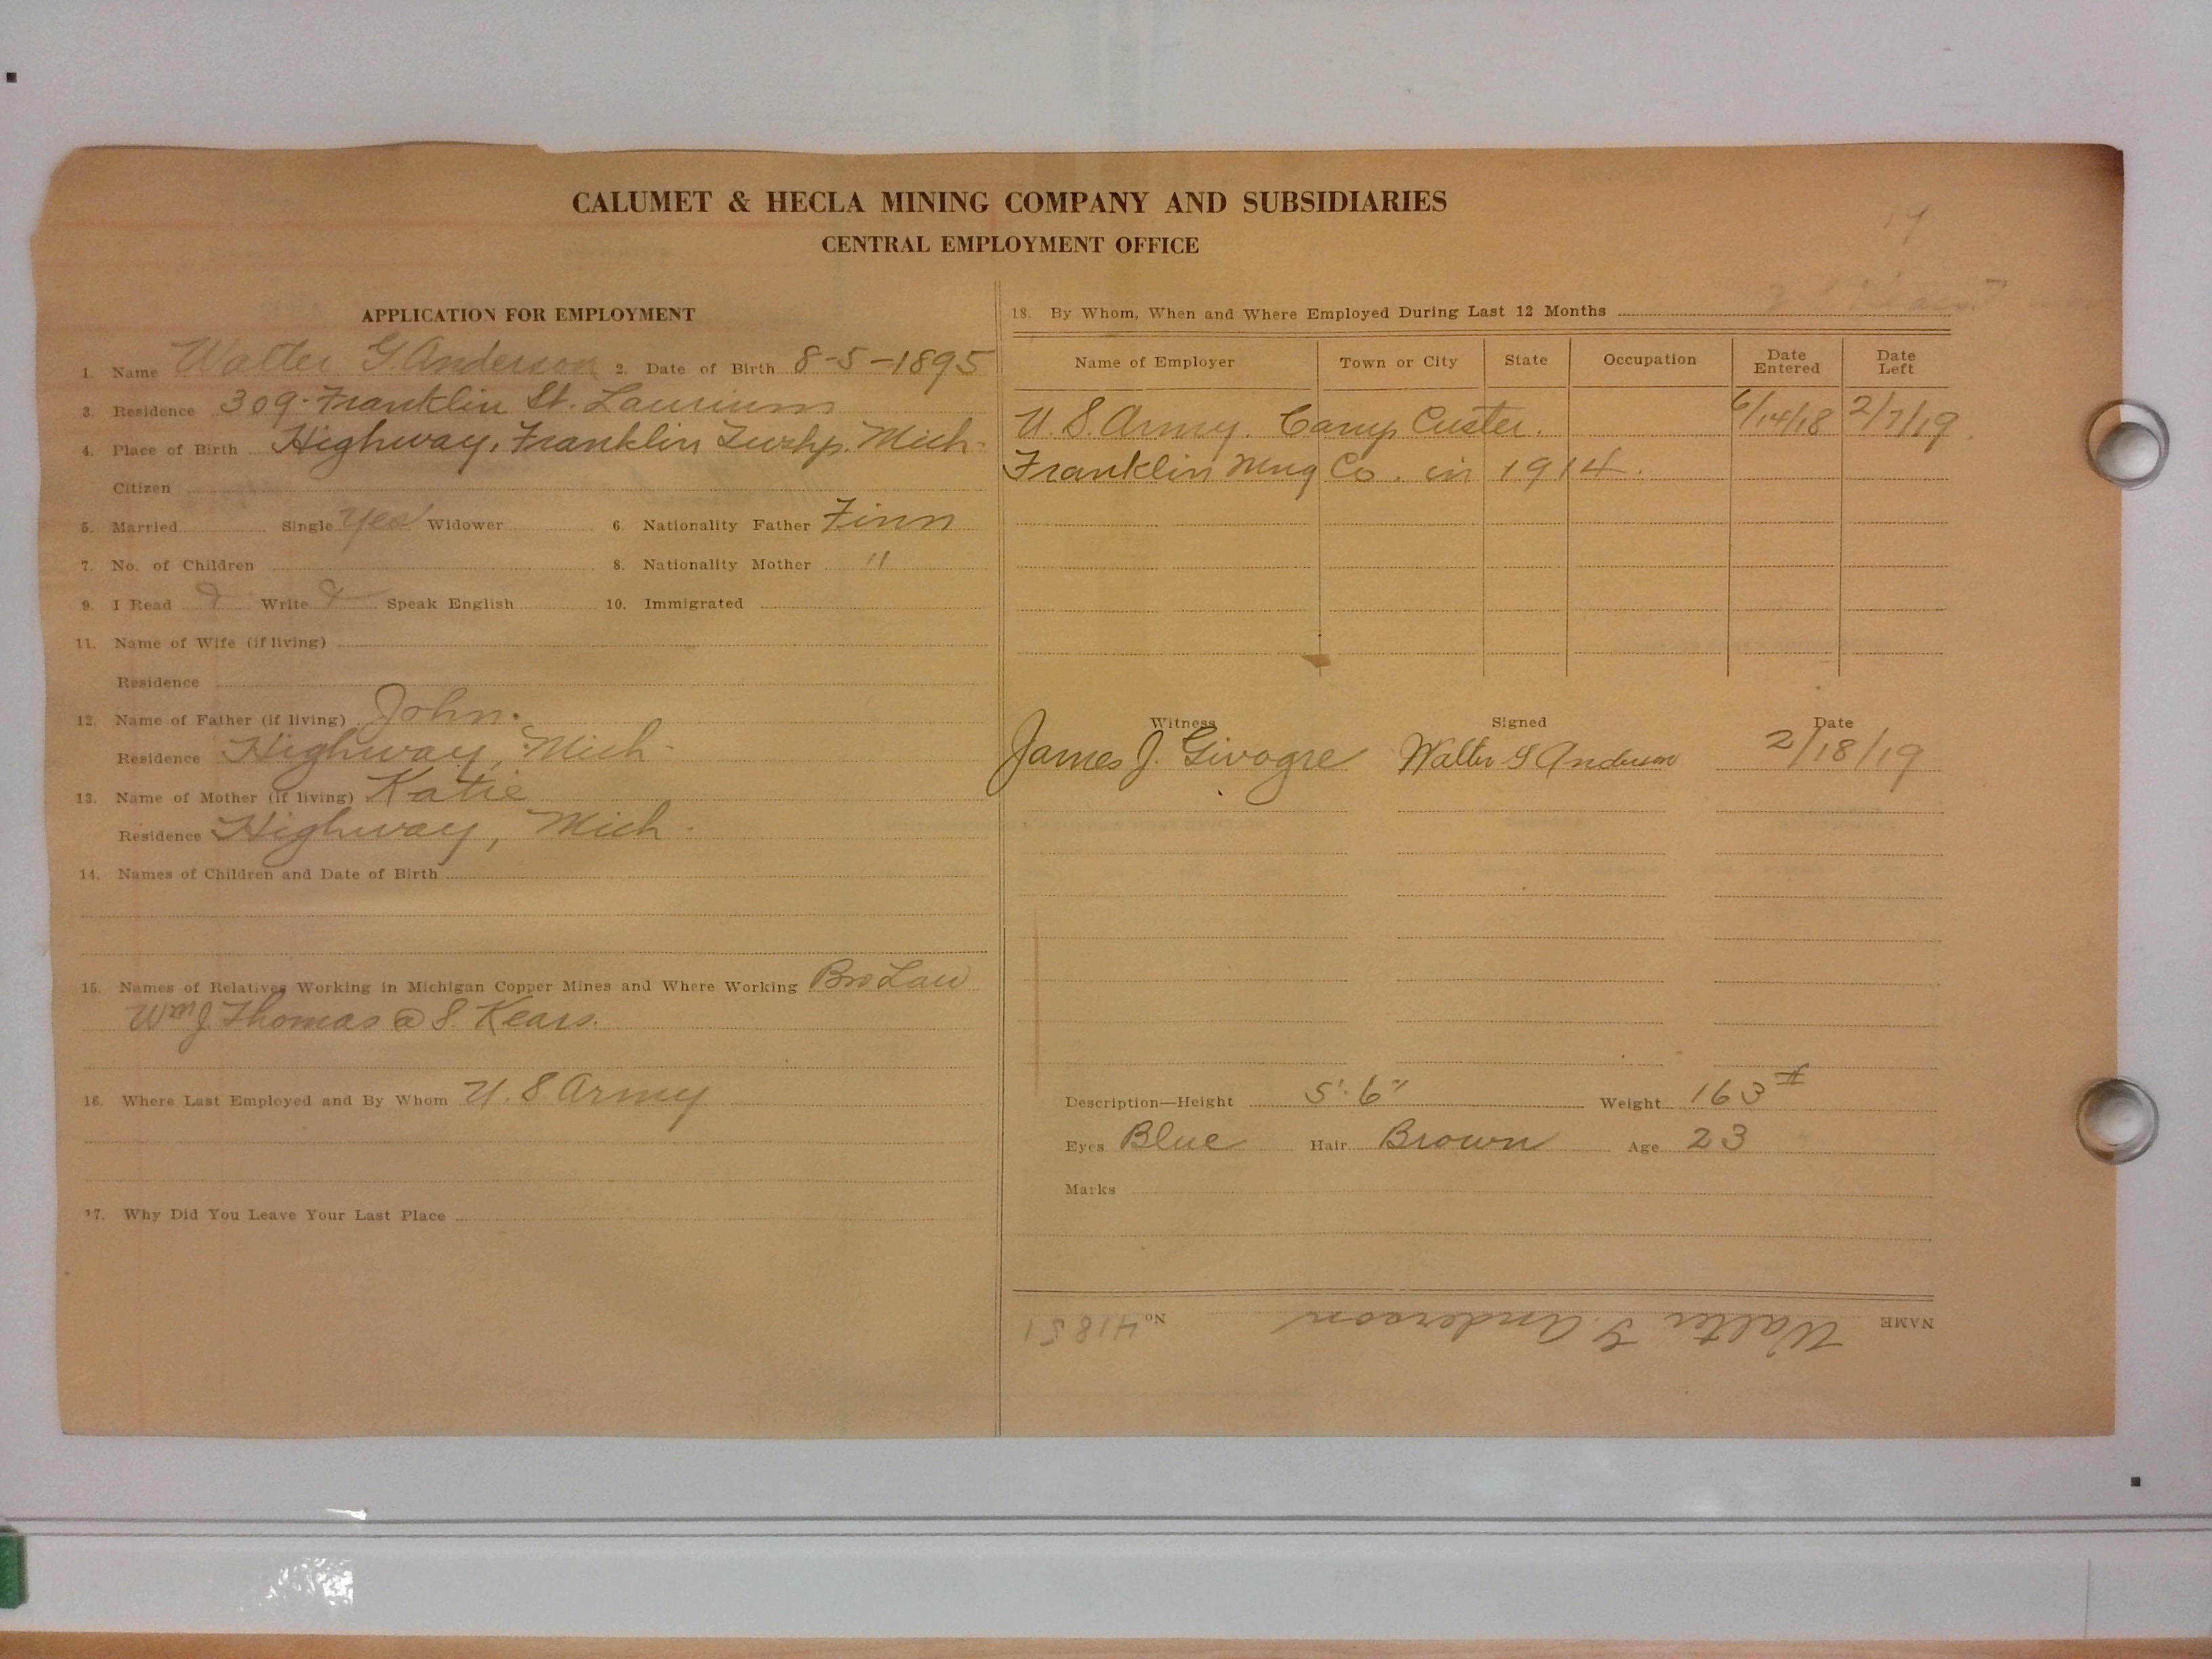 CALUMET & HECLA MINING COMPANY AND SUBSIDIARIES
CENTRAL EMPLOYMENT OFFICE
19
APPLICATION FOR EMPLOYMENT
1. Name Walter G Anderson 2. Date of Birth 8-5-1895
3. Residence 309 Franklin St. Laurium
4. Place of Birth Highway, Franklin Twshp. Mich-
Citizen
5. Married Single Yes Widower 6. Nationality Father Finn
7. No. of Children 8. Nationality Mother "
9. I Read Write Speak English 10. Immigrated
11. Name of Wife (if living)
Residence
12. Name of Father (if living) John.
Residence Highway, Mich-
13. Name of Mother (if living) Katie
Residence Highway, Mich.
14. Names of Children and Date of Birth
15. Names of Relatives Working in Michigan Copper Mines and Where Working Bro Law
Wm J Thomas @ S. Kears.
16. Where Last Employed and By Whom U.S. Army
17. Why Did You Leave Your Last Place
18. By Whom, When and Where Employed During Last 12 Months
Name of Employer Town or City State Occupation Date Entered Date Left
U.S. Army. Camp Custer. 6/14/18 2/7/19.
Franklin Mng Co. in 1914.
Witness Signed Date
James J. Givogre Walter G Anderson 2/18/19
Description—Height 5' 6" Weight 163 #
Eyes Blue Hair Brown Age 23
Marks
NAME Walter G. Anderson No. 41851